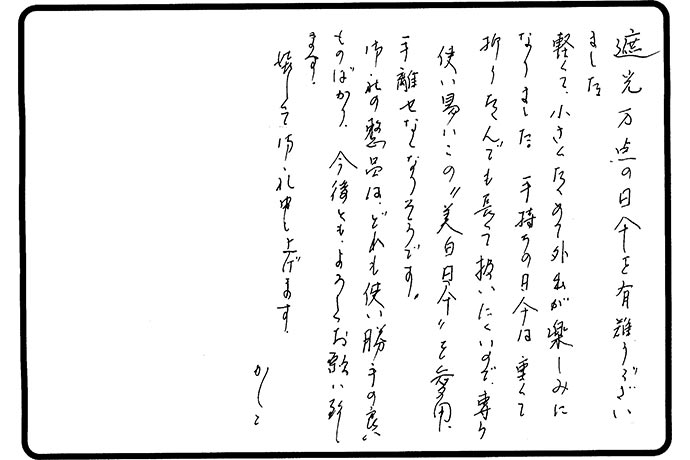 遮光万点の日傘を有難うござい
ました
軽くて、小さくたためて外出が楽しみに
なりました。手持ちの日傘は重くて
折りたたんでも長くて扱いにくいので、専ら
使い易いこの〝美白日傘〟を愛用、
手離せなくなりそうです。
御社の製品は、どれも使い勝手の良い
ものばかり、今後とも、よろしくお願い致し
ます。
厚く御礼申し上げます
かしこ